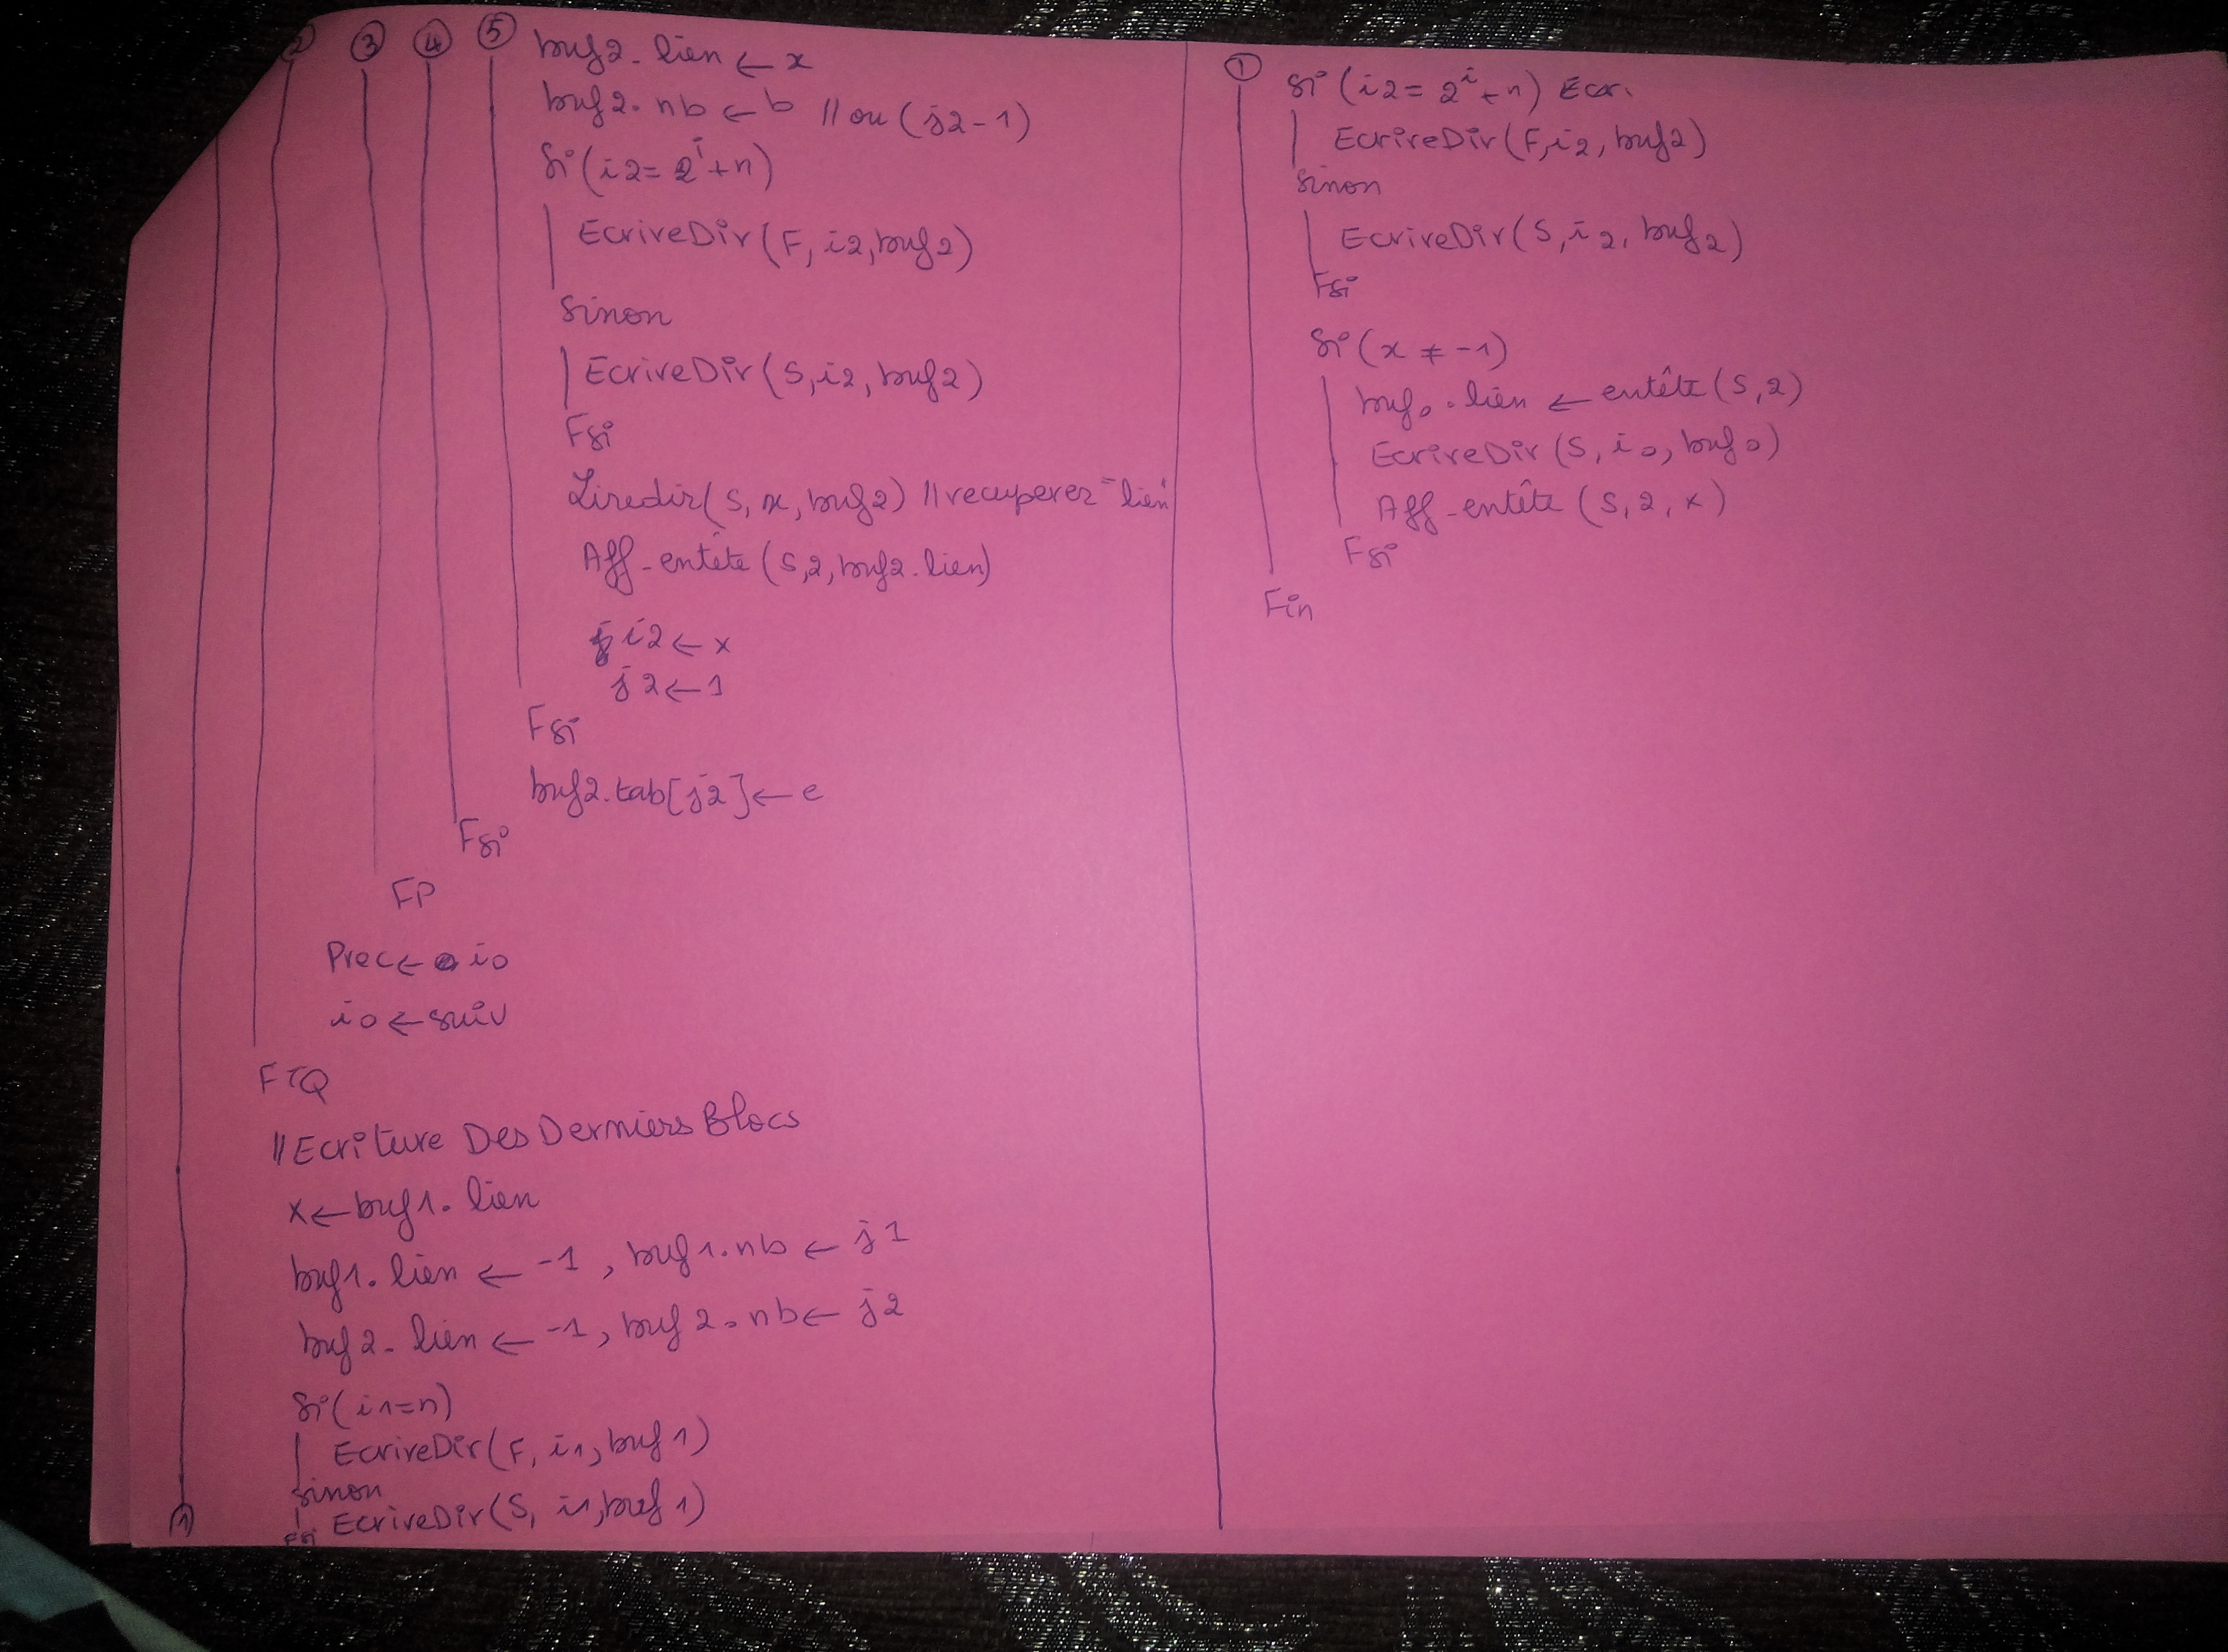 ② ③ ④ ⑤ buf2.lien ← x
buf2.nb ← b // ou (j2-1)
Si (i2 = 2^i + n)
EcrireDir (F, i2, buf2)
Sinon
EcrireDir (S, i2, buf2)
Fsi
Liredir (S, x, buf2) // recuperer "lien"
Aff-entête (S, 2, buf2.lien)
i2 ← x
j2 ← 1
Fsi
buf2.tab[j2] ← e
Fsi
FP
Prec ← i0
i0 ← suiv
FTQ
// Ecriture Des Derniers Blocs
x ← buf1.lien
buf1.lien ← -1, buf1.nb ← j1
buf2.lien ← -1, buf2.nb ← j2
Si (i1=n)
EcrireDir (F, i1, buf1)
Sinon
EcrireDir (S, i1, buf1)
Fsi
①
① Si (i2 = 2^i + n) Ecr.
EcrireDir (F, i2, buf2)
Sinon
EcrireDir (S, i2, buf2)
Fsi
Si (x ≠ -1)
buf0.lien ← entête (S, 2)
EcrireDir (S, i0, buf0)
Aff-entête (S, 2, x)
Fsi
Fin